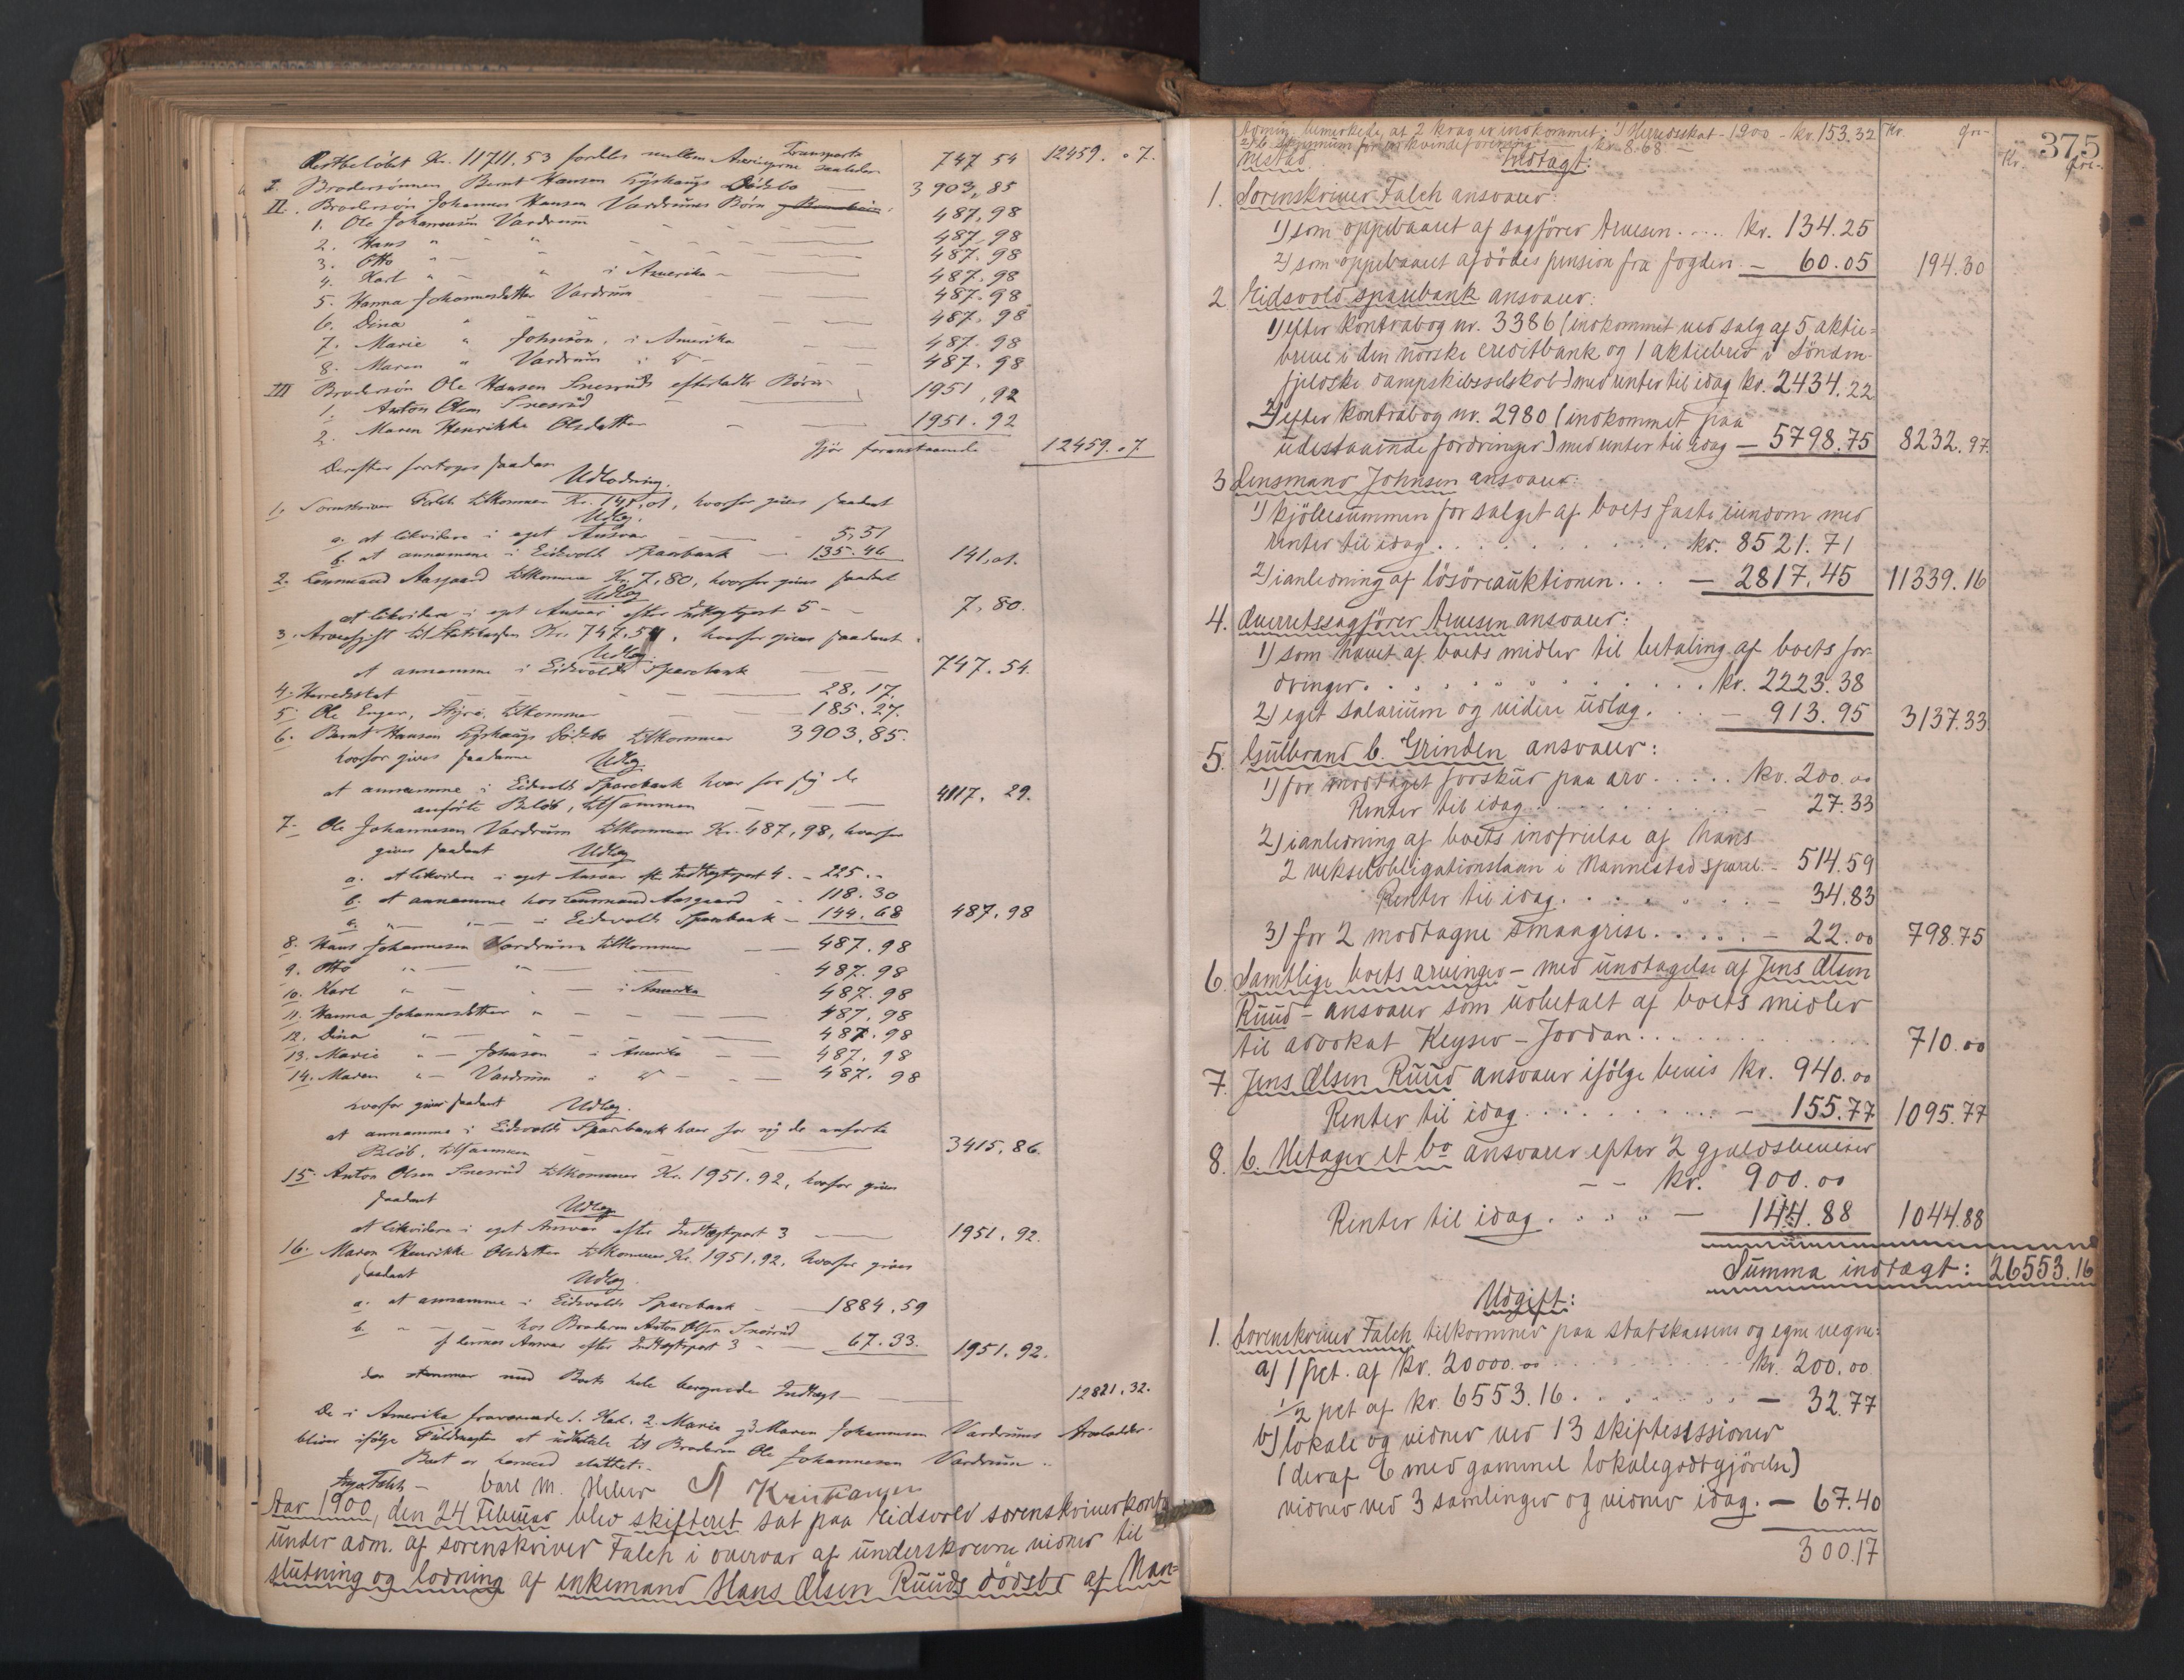 Transporteres
Restbeløbet Kr. 11711,53 fordeles mellem Arvingerne saaledes 747 54 12459.07.
I. Brodersønnen Bernt Hansen Dödsbo — 3903,85
II. Brodersøn Johannes Hansen Vardrums Børn
1. Ole Johannesen Vardrum 487,98
2. Hans " " 487,98
3. Otto " " 487.98
4. Karl " " i Amerika 487.98
5. Hanna Johannesdatter Vardrum 487.98
6. Dina " " 487.98
7. Marie " Johnson, i Amerika 487.98
8. Maren " Vardrum i do 487.98
III Brodersøn Ole Hansen Snesruds efterladte Børn
1. Anton Olsen Snesrud 1951,92
2. Maren Henrikke Olsdatter 1951.92
Gjør foranstaaende 12459.07
Derefter foretoges saadan
Udlodning.
1. Sorenskriver Falch tilkommer Kr. 141,01, hvorfor gives saadant
Udlæg.
a. at likvidere i eget Ansvar 5,51
b. at annamme i Eidsvolds Sparebank — 135.46 141,01.
2. Lensmand Aasgaard tilkommer Kr. 7,80, hvorfor gives saadant
Udlæg
at likvidere i eget Ansvar efter Indtægtspost 5 - 7,80.
3. Arveafgift til Statskassen Kr. 747.54, hvorfor gives saadant
Udlæg.
at annamme i Eidsvolds Sparebank 747.54.
4. Herredsskat 28.17.
5. Ole Enger, Styri, tilkommer 185.27.
6. Bernt Hansen Dödsbo tilkommer 3903.85.
hvorfor gives saadanne Udlæg.
at annamme i Eidsvolds Sparebank hver for sig de
anførte Beløb, tilsammen 4117, 29.
7. Ole Johannesen Vardrum tilkommer Kr. 487,98, hvorfor
gives saadant Udlæg
a. at likvidere i eget Ansvar eft. Indtægtspost 4. - 225.-
b. at annamme hos Lensmand Aasgaard - 118.30
c. " — " — i Eidsvolds Sparebank - 144.68 487.98
8. Hans Johannesen Vardrum tilkommer 487.98
9. Otto " — " — 487.98
10. Karl " — " — i Amerika 487.98
11. Hanna Johannesdatter " — 487.98
12. Dina " — " — 487.98
13. Marie " — Johnson i Amerika 487.98
14. Maren " — Vardrum i do 487.98
hvorfor gives saadant Udlæg.
at annamme i Eidsvolds Sparebank hver for sig de anførte
Beløb, tilsammen 3415,86.
15. Anton Olsen Snesrud tilkommer Kr. 1951.92, hvorfor gives
saadant Udlæg
at likvidere i eget Ansvar efter Indtægtspost 3 1951.92.
16. Maren Henrikke Olsdatter tilkommer Kr. 1951.92, hvorfor gives
saadant Udlæg.
a. at annamme i Eidsvolds Sparebank — 1884.59
b. " — " — hos Broderen Anton Olsen Snesrud
af hennes Ansvar efter Indtægtspost 3 - 67.33. 1951.92.
der stemmer med Boets hele beregnede Indtægt 12821.32.
De i Amerika fraværende 1. Karl, 2. Marie og 3. Maren Johannesen Vardrums Arvelodder
bliver ifølge Fuldmagter at udbetale til Broderen Ole Johannesen Vardrum.
Boet er hermed sluttet.
Falch — Carl M. Kristiansen
Aar 1900, den 24 Februar blev skifteret sat paa Eidsvold sorenskriverkontor
under adm. af sorenskriver Falch i overvær af underskrevne vidner til
slutning og lodning af enkemand Hans Olsen Ruuds dødsbo af Nan=
375
Admin. bemerkede, at 2 krav er indkommet: 1) Herredsskat - 1900 - kr. 153.32 Kr. øre
kr. 8.68
nestad. Indtægt: Kr. øre
1. Sorenskriver Falch ansvarer:
1) som oppebaaret af sagfører Arnesen.... Kr. 134.25
2) som oppebaaret afdødes pension fra fogden. — 60.05 194.30
2. Eidsvold sparebank ansvarer:
1) efter kontrabog nr. 3386 (indkommet ved salg af 5 aktie=
breve i den norske creditbank og 1 aktiebrev i Sönden-
fjeldske dampskibsselskab) med renter til idag kr. 2434.22
2) efter kontrabog nr. 2980 (indkommet paa
udestaaende fordringer) med renter til idag — 5798.75 8232.97
3. Lensmand Johnsen ansvarer:
1) kjöbesummen for salget af boets faste eiendom med
renter til idag.......... kr. 8521.71
2) i anledning af lösöreauktionen... — 2817.45 11339.16
4. Overretssagfører Arnesen ansvarer:
1) som hævet af boets midler til betaling af boets for-
dringer........... kr. 2223.38
2) eget salarium og videre udlæg... — 913.95 3137.33
5. Gulbrand C. Grinden ansvarer:
1) for modtaget forskud paa arv..... Kr. 200.00
Renter til idag......... — 27.33
2) i anledning af boets indfrielse af hans
2 vekselobligationslaan i Nannestad spareb. — 514.59
Renter til idag........ — 34.83
3) for 2 modtagne smaagrise..... — 22.00 798.75
6. Samtlige boets arvinger — med undtagelse af Jens Olsen
Ruud — ansvarer som udbetalt af boets midler
til advokat Keyser-Jordan......... 710.00
7. Jens Olsen Ruud ansvarer ifölge bevis kr. 940.00
Renter til idag.......... — 155.77 1095.77
8. C. Metager et Co ansvarer efter 2 gjeldsbeviser
— — kr. 900.00
Renter til idag..... — 144.88 1044.88
Summa indtægt: 26553.16
Udgift:
1. Sorenskriver Falch tilkommer paa statskassens og egne vegne:
a) 1 pct. af kr. 20000.00........ kr. 200.00
1/2 pct af kr. 6553.16........ — 32.77
b) lokale og vidner ved 13 skiftesessioner
(deraf 6 med gammel lokalegodtgjörelse)
vidner ved 3 samlinger og vidner idag. — 67.40
300.17